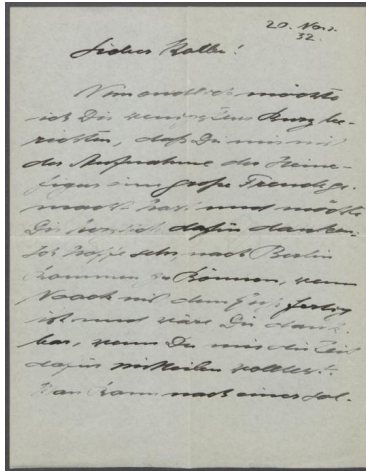 20. Nov.
32.
Lieber Kolbe!
Nun endlich möchte
ich Dir wenigstens kurz be-
richten, daß Du mir mit
der Aufnahme der Heine-
figur eine große Freude ge-
macht hast und möchte
Dir herzlich dafür danken.
Ich hoffe sehr nach Berlin
kommen zu können, wenn
Noack mit dem Guß fertig
ist und wäre Dir dank-
bar, wenn Du mir die Zeit
dafür mitteilen wolltest.
Man kann nach einer sol-